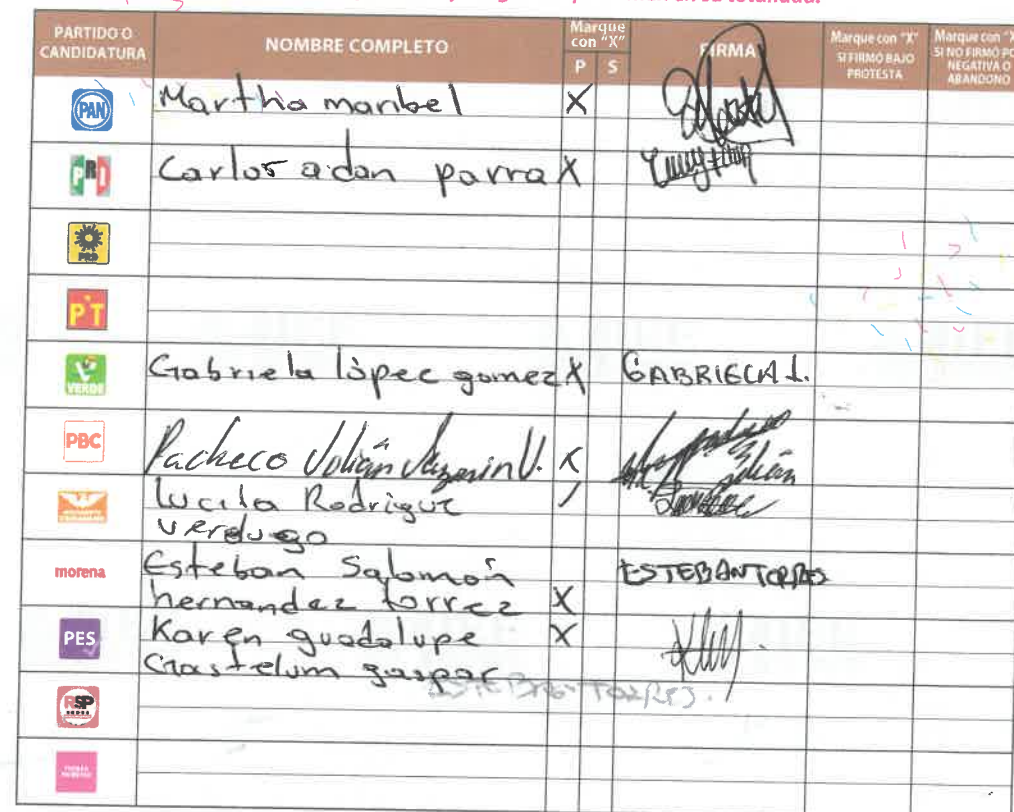 PARTIDO O CANDIDATURA NOMBRE COMPLETO Marque con "X" P S FIRMA Marque con "X" SI FIRMÓ BAJO PROTESTA Marque con "X" SI NO FIRMÓ POR NEGATIVA O ABANDONO
PAN Martha maribel X
PRI Carlos adan parra X
PRD
PT
VERDE Gabriela lòpec gomez X GABRIELA L.
PBC Pacheco Julián V. X
Lucila Rodriguz
verdugo
morena Esteban Salomón ESTEBAN TORRES
hernandez torrez X
PES Karen guadalupe X
Gastelum gaspar
ESTEBAN TORRES.
RSP